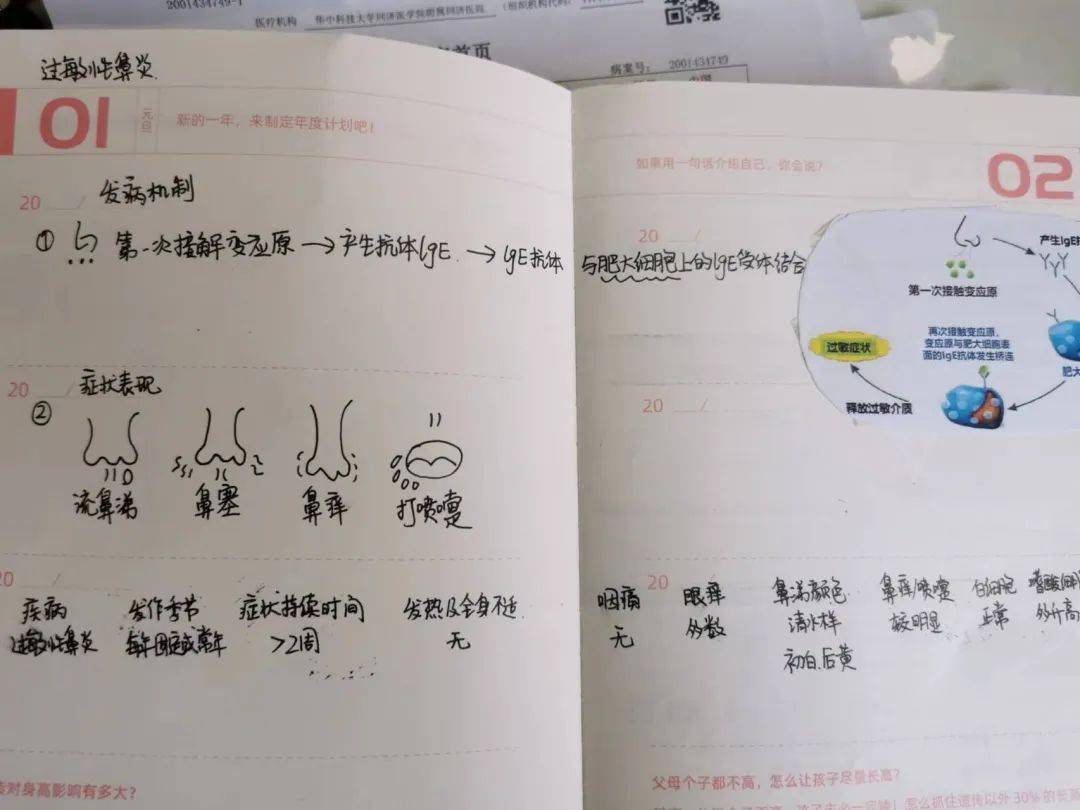 2001434749-1
医疗机构 华中科技大学同济医学院附属同济医院 (组织机构代码:
首页
病案号: 2001434749
过敏性鼻炎
01 元旦 新的一年，来制定年度计划吧！
20 / 发病机制
① 第一次接触变应原→产生抗体IgE→IgE抗体与肥大细胞上的IgE受体结合
20 / 症状表现
②
流鼻涕 鼻塞 鼻痒 打喷嚏
20 /
疾病 发作季节 症状持续时间 发热及全身不适
过敏性鼻炎 每年固定或常年 >2周 无
对身高影响有多大？
如果用一句话介绍自己，你会说？
02
20 /
产生IgE
第一次接触变应原
再次接触变应原，
变应原与肥大细胞表
面的IgE抗体发生桥连
过敏症状
肥大
释放过敏介质
20 /
20 /
咽痛 眼痒 鼻涕颜色 鼻痒/喷嚏 白细胞 嗜酸
无 多数 清水样 较明显 正常 多升高
初白.后黄
父母个子都不高，怎么让孩子尽量长高？
怎么抓住遗传以外 30% 的长高